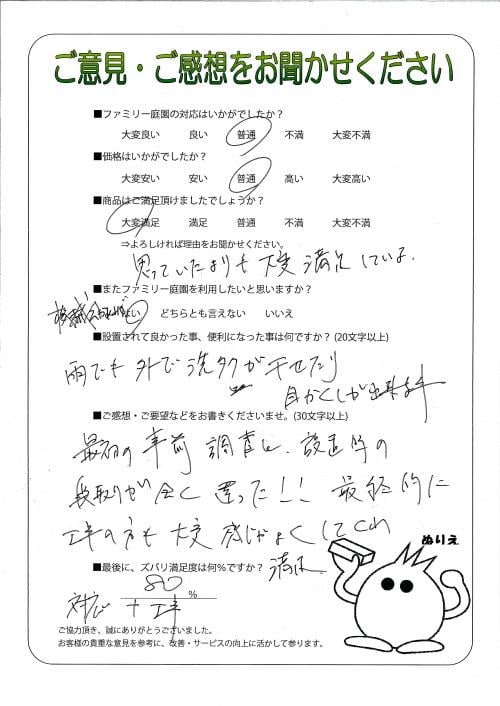 ご意見・ご感想をお聞かせください
■ファミリー庭園の対応はいかがでしたか？
大変良い 良い 普通 不満 大変不満
■価格はいかがでしたか？
大変安い 安い 普通 高い 大変高い
■商品はご満足頂けましたでしょうか？
大変満足 満足 普通 不満 大変不満
⇒よろしければ理由をお聞かせください。
思っていたよりも大変満足している。
■またファミリー庭園を利用したいと思いますか？
機械があれば はい どちらとも言えない いいえ
■設置されて良かった事、便利になった事は何ですか？(20文字以上)
雨でも外で洗タクが干せたり
目かくしが出来ます
■ご感想・ご要望などをお書きくださいませ。(30文字以上)
最初の事前調査と、設置時の
段取りが全く違った!! 最終的に
工事の方も大変感じがよくしてくれ
満足
ぬりえ
■最後に、ズバリ満足度は何％ですか？
80 %
対応 + 工事
ご協力頂き、誠にありがとうございました。
お客様の貴重な意見を参考に、改善・サービスの向上に活かして参ります。